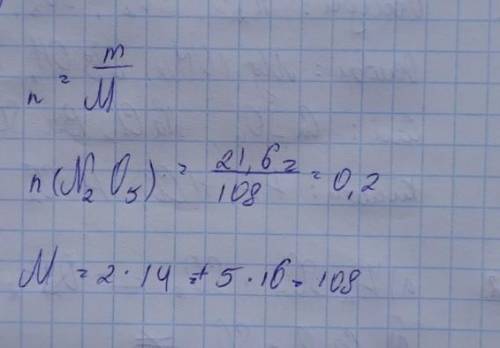 n = m/M
n(N₂O₅) = 21,6г/108 = 0,2
M = 2·14 + 5·16 = 108